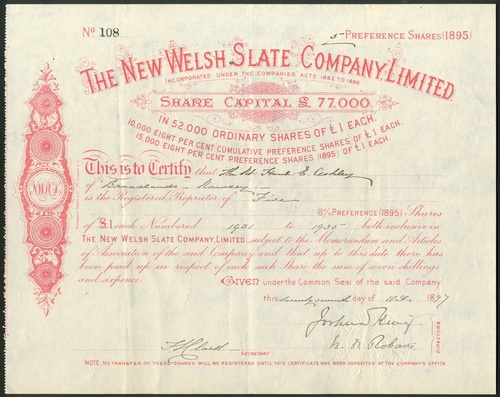 No 108
5 - PREFERENCE SHARES (1895)
THE NEW WELSH SLATE COMPANY, LIMITED
INCORPORATED UNDER THE COMPANIES ACTS 1862 TO 1890.
SHARE CAPITAL £ 77,000.
IN 52,000 ORDINARY SHARES OF £1 EACH.
10,000 EIGHT PER CENT CUMULATIVE PREFERENCE SHARES OF £1 EACH.
15,000 EIGHT PER CENT PREFERENCE SHARES (1895) OF £1 EACH.
This is to Certify that The Rt. Honble. E. Ashley
of Broadlands Romsey
is the Registered Proprietor of Five
8% PREFERENCE (1895) Shares
of £1 each Numbered 1931 to 1935 both inclusive in
THE NEW WELSH SLATE COMPANY, LIMITED, subject to the Memorandum and Articles
of Association of the said Company and that up to this date there has
been paid up in respect of each such Share the sum of seven shillings
and sixpence.
GIVEN under the Common Seal of the said Company
this day of Oct. 1897
DIRECTORS
SECRETARY
NOTE, NO TRANSFER OF THESE SHARES WILL BE REGISTERED UNTIL THIS CERTIFICATE HAS BEEN DEPOSITED AT THE COMPANY'S OFFICE.